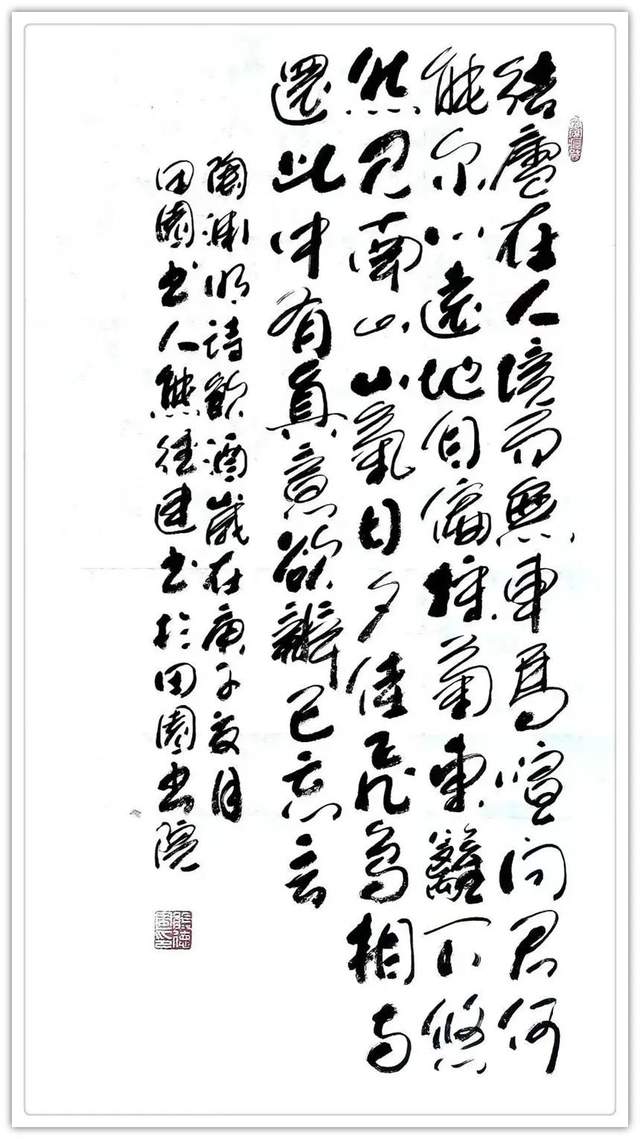 結廬在人境而無車馬喧问君何
能尔心遠地自偏採菊東籬下悠
然见南山山氣日夕佳飞鸟相与
還此中有真意欲辨已忘言
陶渊明诗飲酒歲在庚子夏月
田園书人熊德建书於田園书院